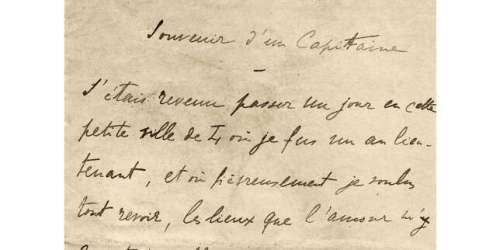 Souvenir d'un Capitaine
J'étais revenu passer un jour en cette
petite ville de L où je fus un an lieu-
tenant, et où fiévreusement je voulus
tout revoir, les lieux que l'amour m'y